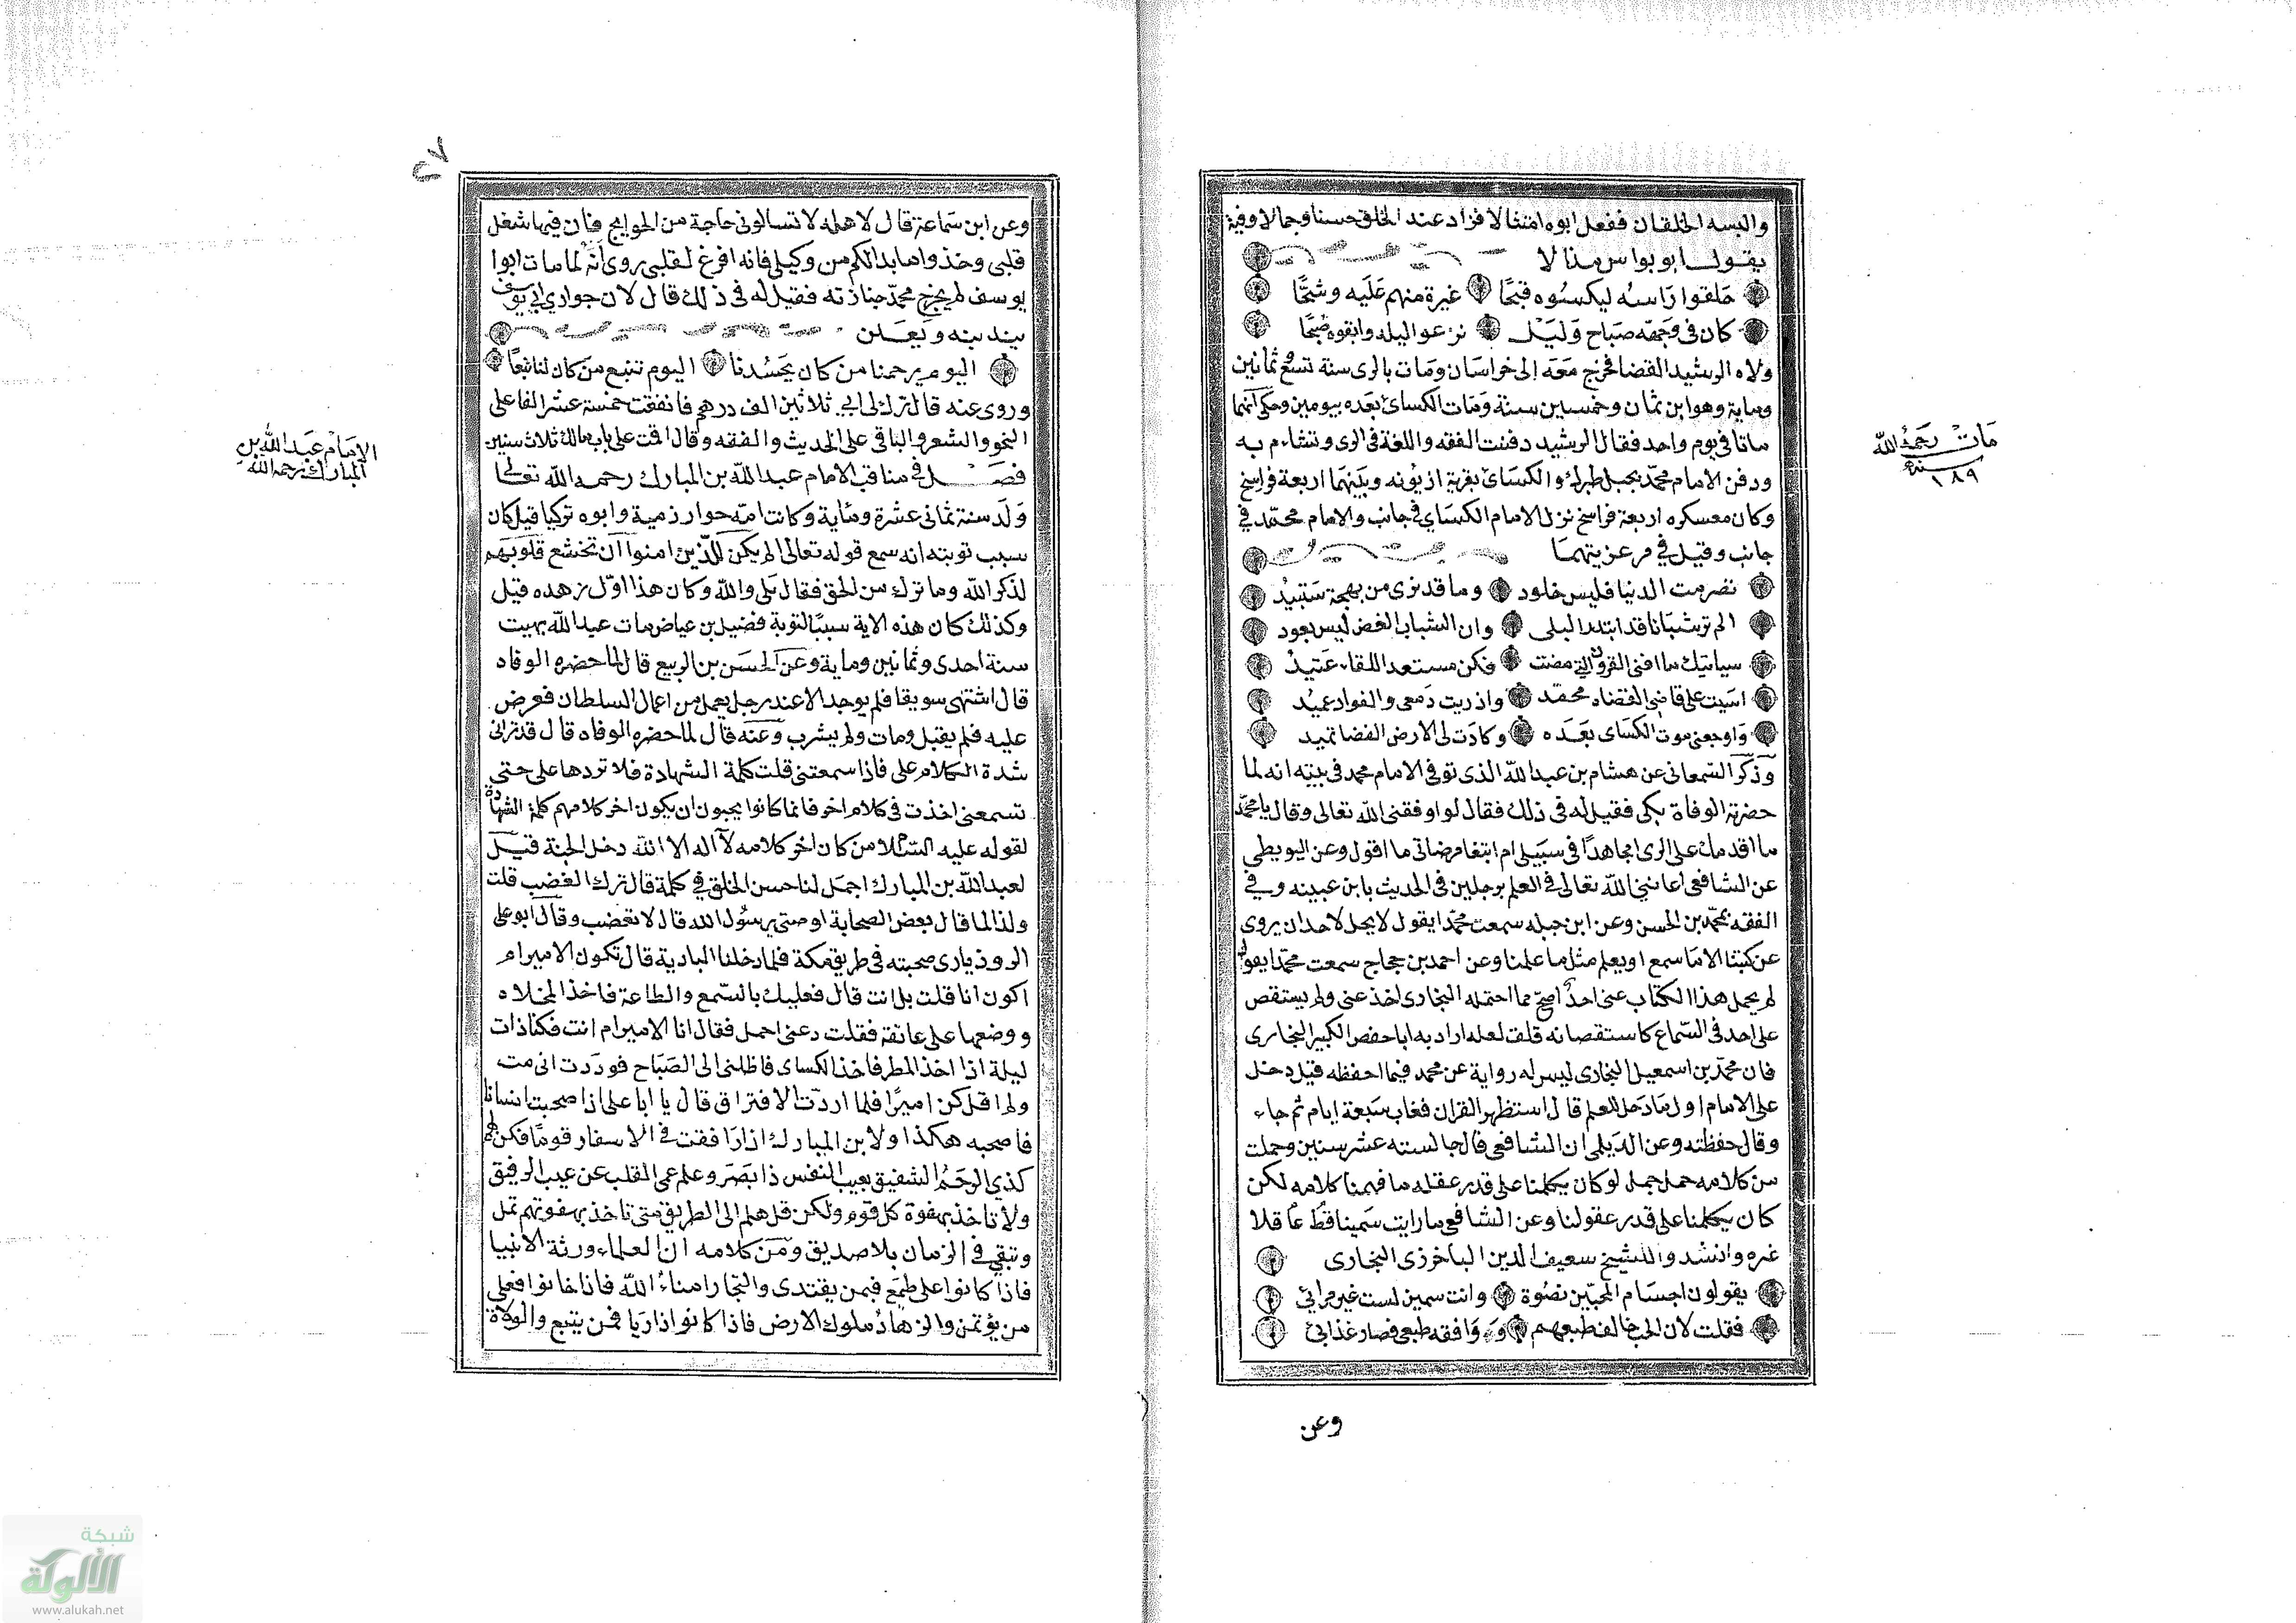 والبسه الخلقان ففعل ابوه امتثالا فزاد عند الخلق حسنا وجمالا وفيه
يقول ابو نواس مذالا
حلقوا راسه ليكسوه قبحا غيرة منهم عليه وشحا
كان في وجهه صباح وليل نزعوا ليله وابقوه صبحا
ولاه الرشيد القضا فخرج معه الى خراسان ومات بالرى سنة تسع وثمانين
وماية وهو ابن ثمان وخمسين سنة ومات الكسائ بعده بيومين وحكى انهما
ماتا في يوم واحد فقال الرشيد دفنت الفقه واللغة فى الرى وتشاءم به
ودفن الامام محمد بجبل طبرك والكسائ بقرية ازنبوية وبينهما اربعة فراسخ
وكان معسكره اربعة فراسخ نزل الامام الكساي في جانب والامام محمد في
جانب وقيل في مرعزيتهما
تصرمت الدنيا فليس خلود وما قد نرى من بهجة ستبيد
الم تر شبانا قد ابتدر البلى وان الشباب الغض ليس يعود
سياتيك ما افنى القرون التي مضت فكن مستعدا للقاء عتيد
اسيت على قاضي القضاه محمد واذريت دمعى والفواد عميد
واوجعنى موت الكساى بعده وكادت لى الارض الفضا تميد
وذكر السمعانى عن هشام بن عبد الله الذى توفى الامام محمد فى بيته انه لما
حضرته الوفاة بكى فقيل له فى ذلك فقال لو اوقفنى الله تعالى وقال يا محمد
ما اقدمك على الرى امجاهدا فى سبيلى ام ابتغا مرضاتى ما اقول وعن البويطى
عن الشافعى اعاننى الله تعالى فى العلم برجلين فى الحديث بابن عيينه وفي
الفقه بمحمد بن الحسن وعن ابن جبله سمعت محمدا يقول لا يحل لاحد ان يروى
عن كتبنا الا ما سمع او يعلم مثل ما علمنا وعن احمد بن حجاج سمعت محمدا يقول
لم يحمل هذا الكتاب عنى احد اصح مما احتمله البخارى اخذ عنى ولم يستقص
على احد فى السماع كاستقصائه قلت لعله اراد به ابا حفص الكبير البخارى
فان محمد بن اسمعيل البخارى ليس له رواية عن محمد فيما احفظه قيل دخل
على الامام اول ما دخل للعلم قال استظهر القران فغاب سبعة ايام ثم جاء
وقال حفظته وعن الديلمى ان الشافعى قال جالسته عشر سنين وحملت
من كلامه حمل جمل لو كان يكلمنا على قدر عقله ما فهمنا كلامه لكن
كان يكلمنا على قدر عقولنا وعن الشافعى ما رايت سمينا قط عاقلا
غيره وانشدوا للشيخ سعيف الدين الباخرزى البخارى
يقولون اجسام المحبين نضوة وانت سمين لست غير مرائي
فقلت لان الحب خالف طبعهم ووافقه طبعى فصار غذائي
وعن
مات رحمه الله
سنة
١٨٩
٢٧
وعن ابن سماعة قال لاهله لا تسالونى حاجة من الحوايج فان فيها شغل
قلبى وخذوا ما بدا لكم من وكيلى فانه افرغ لقلبى روى انه لما مات ابوا
يوسف لم يخرج محمد جنازته فقيل له فى ذلك قال لان جوارى ابي يوسف
يندبنه ويعلن
اليوم يرحمنا من كان يحسدنا اليوم نتبع من كان لنا تبعا
وروى عنه قال ترك لى ابي ثلاثين الف درهم فانفقت خمسة عشر الفا على
النحو والشعر والباقى على الحديث والفقه وقال اقمت على باب مالك ثلاث سنين
فصل في مناقب الامام عبد الله بن المبارك رحمه الله تعالى
ولد سنة ثمانى عشرة ومئاية وكانت امه حوارزمية وابوه تركيا قيل كان
سبب توبته انه سمع قوله تعالى الم يكن للذين امنوا ان تخشع قلوبهم
لذكر الله وما نزل من الحق فقال بلى والله وكان هذا اول زهده قيل
وكذلك كان هذه الاية سببا لتوبة فضيل بن عياض مات عبد الله بهيت
سنة احدى وثمانين وماية وعن الحسن بن الربيع قال لما حضره الوفاه
قال اشتهى سويقا فلم يوجد الا عند رجل يعمل من اعمال السلطان فعرض
عليه فلم يقبل ومات ولم يشرب وعنه قال لما حضره الوفاه قال قد ترانى
شدة الكلام على فاذا سمعتنى قلت كلمة الشهادة فلا تردها على حتى
تسمعنى اخذت فى كلام اخر فانما كانوا يحبون ان يكون اخر كلامهم كلمة الشهادة
لقوله عليه السلام من كان اخر كلامه لا اله الا الله دخل الجنة قيل
لعبد الله بن المبارك اجمل لنا حسن الخلق في كلمة قال ترك الغضب قلت
ولذا لما قال بعض الصحابة اوصنى يرسول الله قال لا تغضب وقال ابو على
الروذبارى صحبته فى طريق مكة فلما دخلنا البادية قال تكون الامير ام
اكون انا قلت بل انت قال فعليك بالسمع والطاعة فاخذ المخلاه
ووضعها على عاتقه فقلت دعنى احمل فقال انا الامير ام انت فكنا ذات
ليلة اذا اخذ المطر فاخذ الكساى فاظلنى الى الصباح فوددت انى مت
ولم اقل كن اميرا فلما اردت الافتراق قال يا ابا على اذا صحبت انسانا
فاصحبه هكذا ولابن المبارك اذا رافقت في الاسفار قوما فكن لهم
كذى الرحم الشفيق بعيب النفس ذا بصر وعلم عمى القلب عن عيب الرفيق
ولا تاخذ بهفوة كل قوم ولكن قل هلم الى الطريق متى تاخذ بهفوتهم تمل
وتبقى في الزمان بلا صديق ومن كلامه ان العلماء ورثة الانبيا
فاذا كانوا على طمع فبمن يقتدى والتجار امناء الله فاذا خانوا فعلى
من يؤتمن والزهاد ملوك الارض فاذا كانوا اذا ريا فمن يتبع والولاة
الامام عبد الله بن
المبارك رحمه الله
شبكة
الألوكة
www.alukah.net